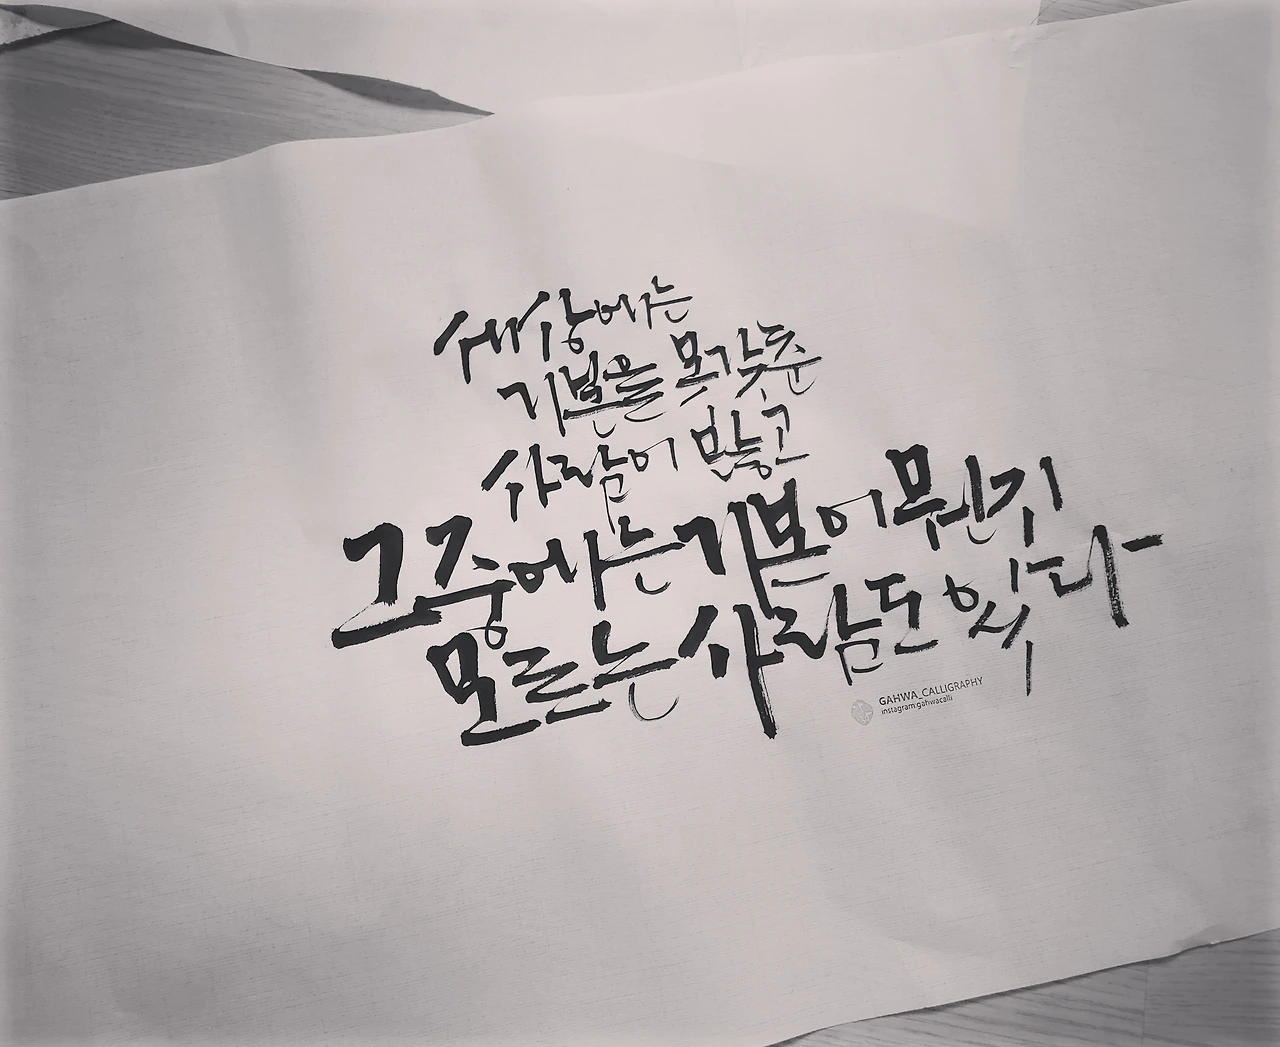 세상에는
기본을 못갖춘
사람이 많고
그중에는 기본이 뭔지
모르는 사람도 있다
GAHWA_CALLIGRAPHY
instagram:gahwacalli